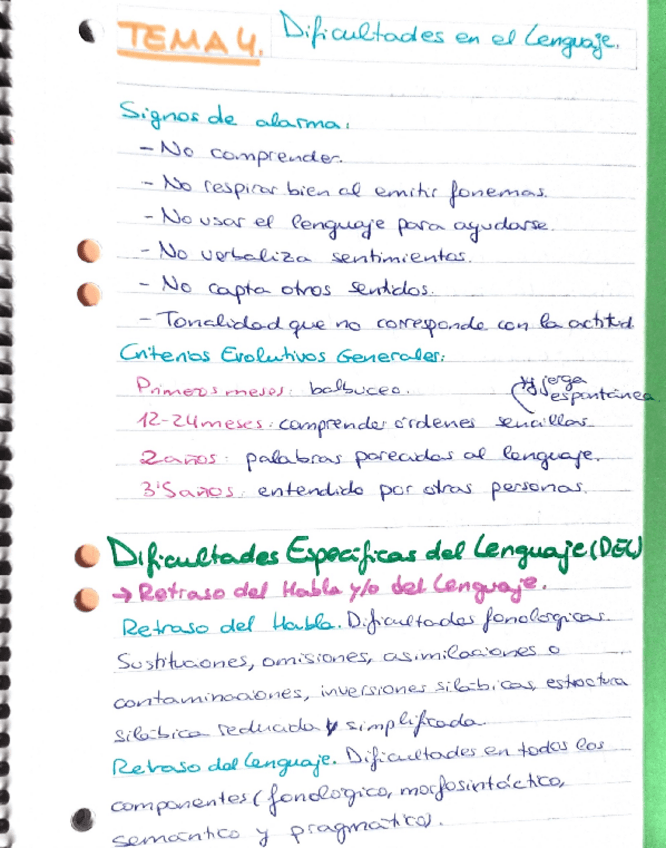 TEMA 4. Dificultades en el Lenguaje.
Signos de alarma:
- No comprender.
- No respirar bien al emitir fonemas.
- No usar el lenguaje para ayudarse.
- No verbaliza sentimientos.
- No capta otros sentidos.
- Tonalidad que no corresponde con la actitud.
Criterios Evolutivos Generales:
Primeros meses: balbuceo.
y jerga espontánea
12-24 meses: comprender órdenes sencillas
2 años: palabras parecidas al lenguaje.
3'5 años: entendido por otras personas.
Dificultades Específicas del Lenguaje (DEL)
→ Retraso del Habla y/o del Lenguaje.
Retraso del Habla. Dificultades fonológicas.
Sustituciones, omisiones, asimilaciones o
contaminaciones, inversiones silábicas, estructura
silábica reducida y simplificada.
Retraso del Lenguaje. Dificultades en todos los
componentes (fonológico, morfosintáctico,
semántico y pragmático).